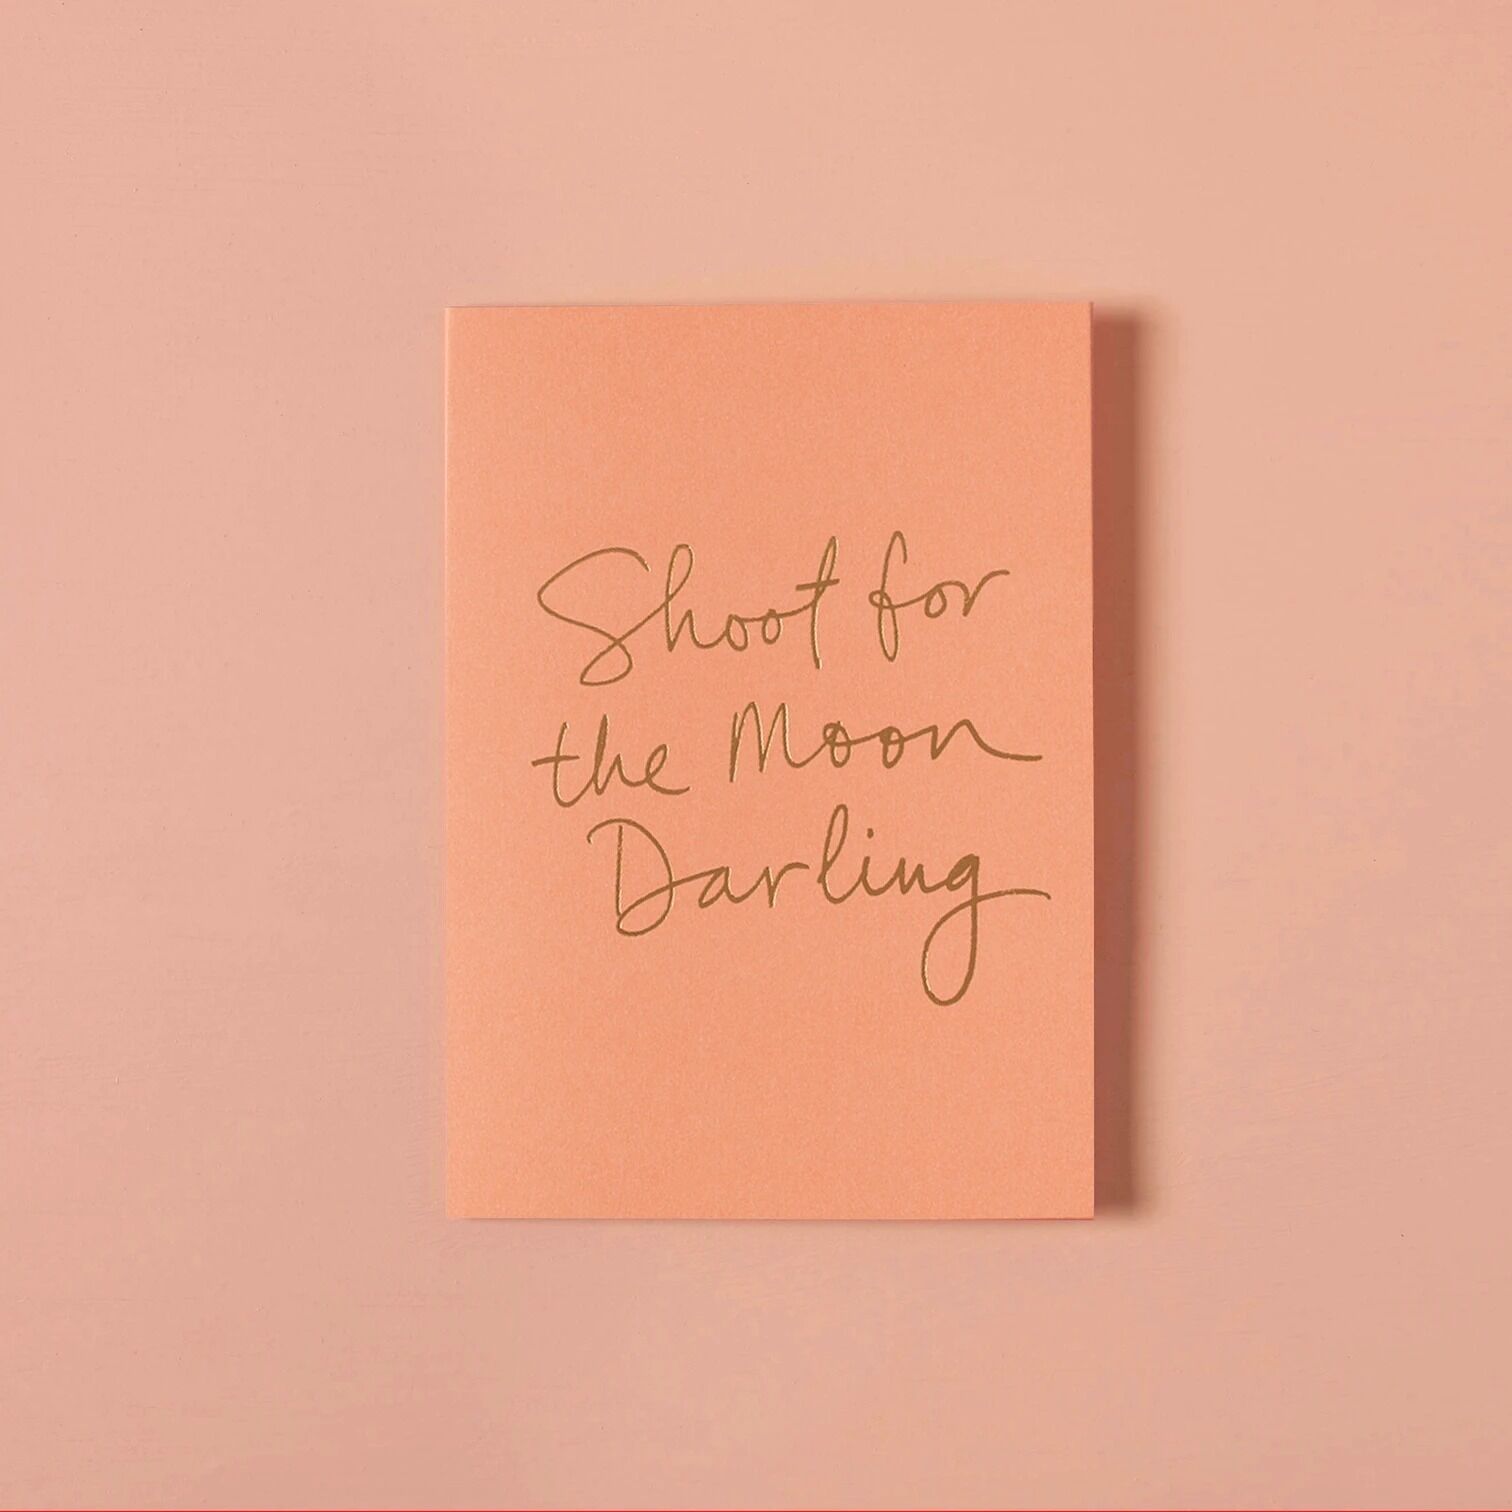 Shoot for
the Moon
Darling